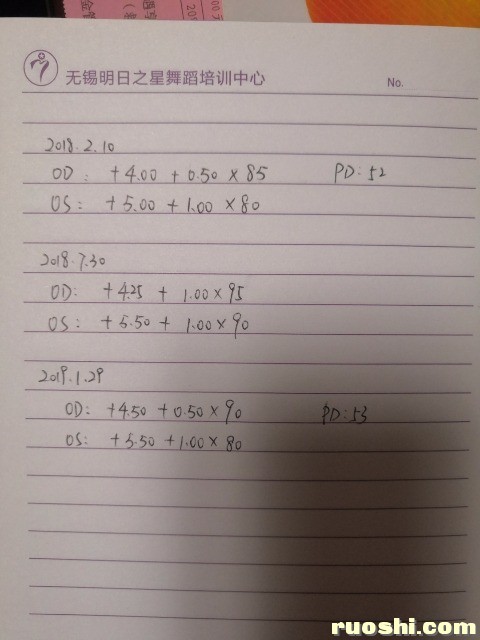 无锡明日之星舞蹈培训中心
No.
2018.2.10
OD: +4.00 +0.50 × 85 PD: 52
OS: +5.00 +1.00 × 80
2018.7.30
OD: +4.25 + 1.00 × 95
OS: +5.50 + 1.00 × 90
2019.1.29
OD: +4.50 +0.50 × 90 PD: 53
OS: +5.50 +1.00 × 80
ruoshi.com